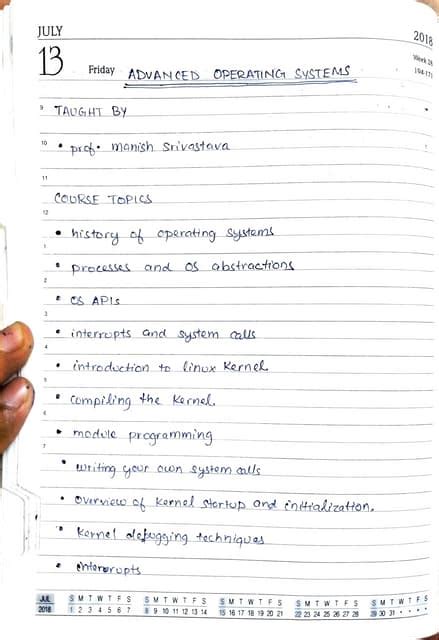 JULY
2018
13
Week 28
Friday
(194-171)
ADVANCED OPERATING SYSTEMS
9
TAUGHT BY
10
• prof. Manish Srivastava
11
COURSE TOPICS
12
• history of operating systems
1
• processes and OS abstractions
2
• OS APIs
3
• interrupts and system calls
4
• introduction to linux Kernel
5
• compiling the Kernel.
6
• module programming
7
• writing your own system calls
• overview of Kernel startup and initialization.
• Kernel debugging techniques
JUL
2018
S M T W T F S
1 2 3 4 5 6 7
S M T W T F S
8 9 10 11 12 13 14
S M T W T F S
15 16 17 18 19 20 21
S M T W T F S
22 23 24 25 26 27 28
S M T W T F S
29 30 31 • • • •